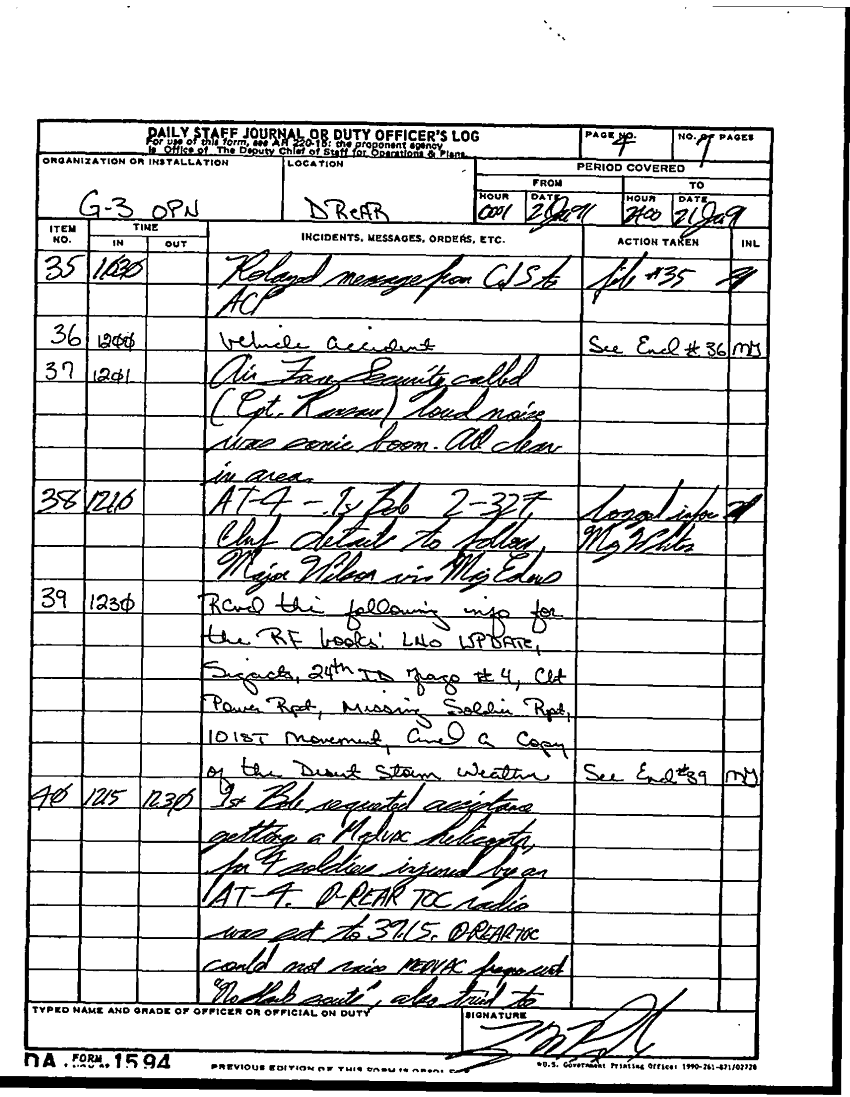 DAILY STAFF JOURNAL OR DUTY OFFICER'S LOG
For use of this form, see AR 220-15; the proponent agency
is Office of The Deputy Chief of Staff for Operations & Plans.
PAGE NO.
4
NO. OF PAGES
ORGANIZATION OR INSTALLATION
G-3 OPN
LOCATION
DREAR
PERIOD COVERED
FROM
TO
HOUR
0001
DATE
21 Jan 91
HOUR
2400
DATE
21 Jan 91
ITEM
NO.
TIME
IN
OUT
INCIDENTS, MESSAGES, ORDERS, ETC.
ACTION TAKEN
INL
35 1030 message from C/S to file #35
ACP
36 1200 Vehicle accident See Encl # 36 MJ
37 1201 Air Force Security called
(Cpt. ) loud noise
was sonic boom. All clear
in area.
38 1210 AT-4 - 1st Bde 2-327, info
details to follow, Maj
Major Wilson via Maj
39 1230 Rcvd the following info for
the RF books: LNO UPDATE,
Sigacts, 24th ID Frago # 4, Cbt
Power Rpt, Missing Soldier Rpt,
101ST Movement, and a Copy
of the Desert Storm Weather See Encl #39 MJ
40 1215 1230 1st Bde requested assistance
getting a Medvac helicopter
for 4 soldiers injured by an
AT-4. D-REAR TOC radio
was set to 39.15. D-REAR TOC
could not raise MEDVAC freq
also tried to
TYPED NAME AND GRADE OF OFFICER OR OFFICIAL ON DUTY
SIGNATURE
DA FORM 1594
PREVIOUS EDITION OF THIS FORM IS OBSOLETE
U.S. Government Printing Office: 1990-261-871/02720